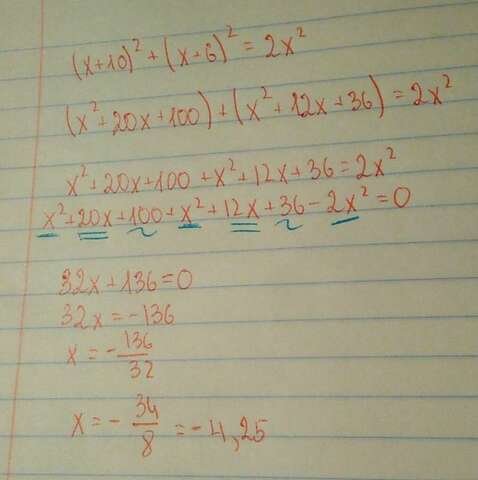 (x+10)² + (x+6)² = 2x²
(x²+20x+100)+(x²+12x+36)=2x²
x²+20x+100+x²+12x+36=2x²
x²+20x+100+x²+12x+36-2x²=0
32x+136=0
32x=-136
x=-136/32
x=-34/8=-4,25